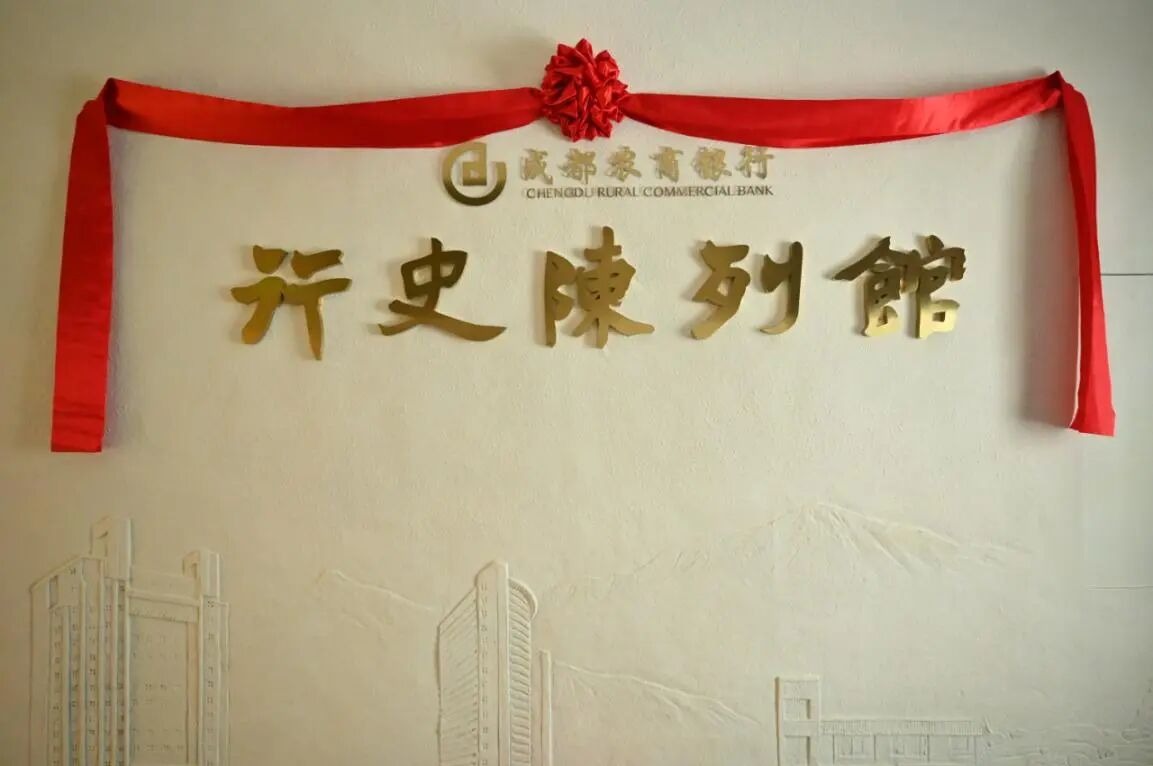 成都农商银行
CHENGDU RURAL COMMERCIAL BANK
行史陳列館